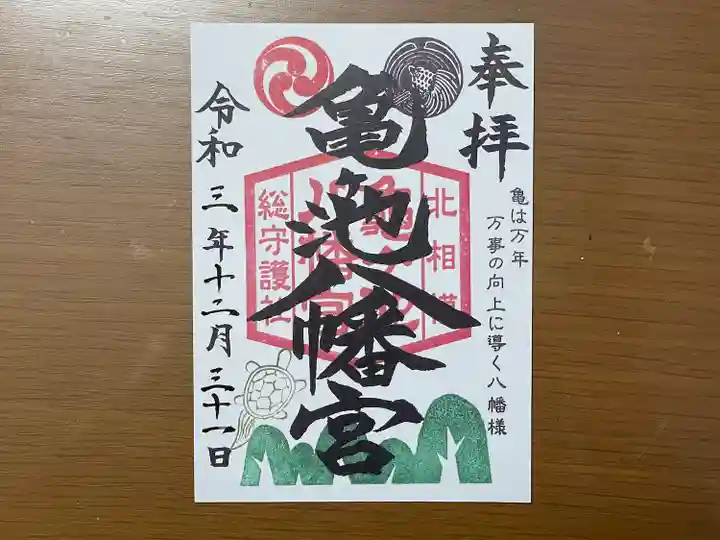 奉拝
亀は万年
万事の向上に導く八幡様
亀ヶ池八幡宮
北相模
亀ヶ池
八幡宮
総守護社
令和三年十二月三十一日